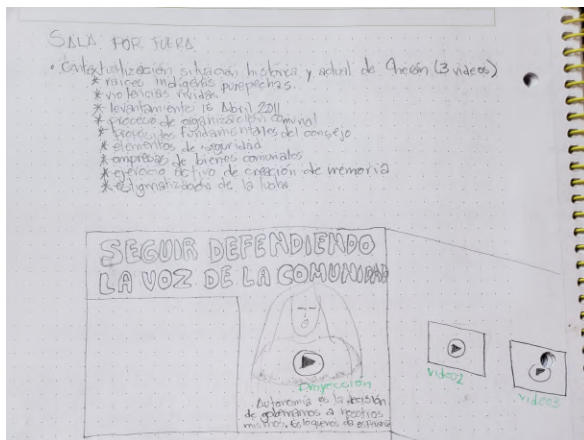 SALA POR FUERA
• Contextualización situación histórica y actual de Cherán (3 videos)
* raíces indígenas purépechas.
* violencias vividas
* levantamiento 15 Abril 2011
* proceso de organización comunal
* proyectos fundamentales del consejo
* elementos de seguridad
* empresas de bienes comunales
* ejercicio activo de creación de memoria
* estigmatización de la lucha
SEGUIR DEFENDIENDO
LA VOZ DE LA COMUNIDAD
Proyección
Autonomía es la decisión
de gobernarnos a nosotros
mismos. Es lo que nos da
video2
video3